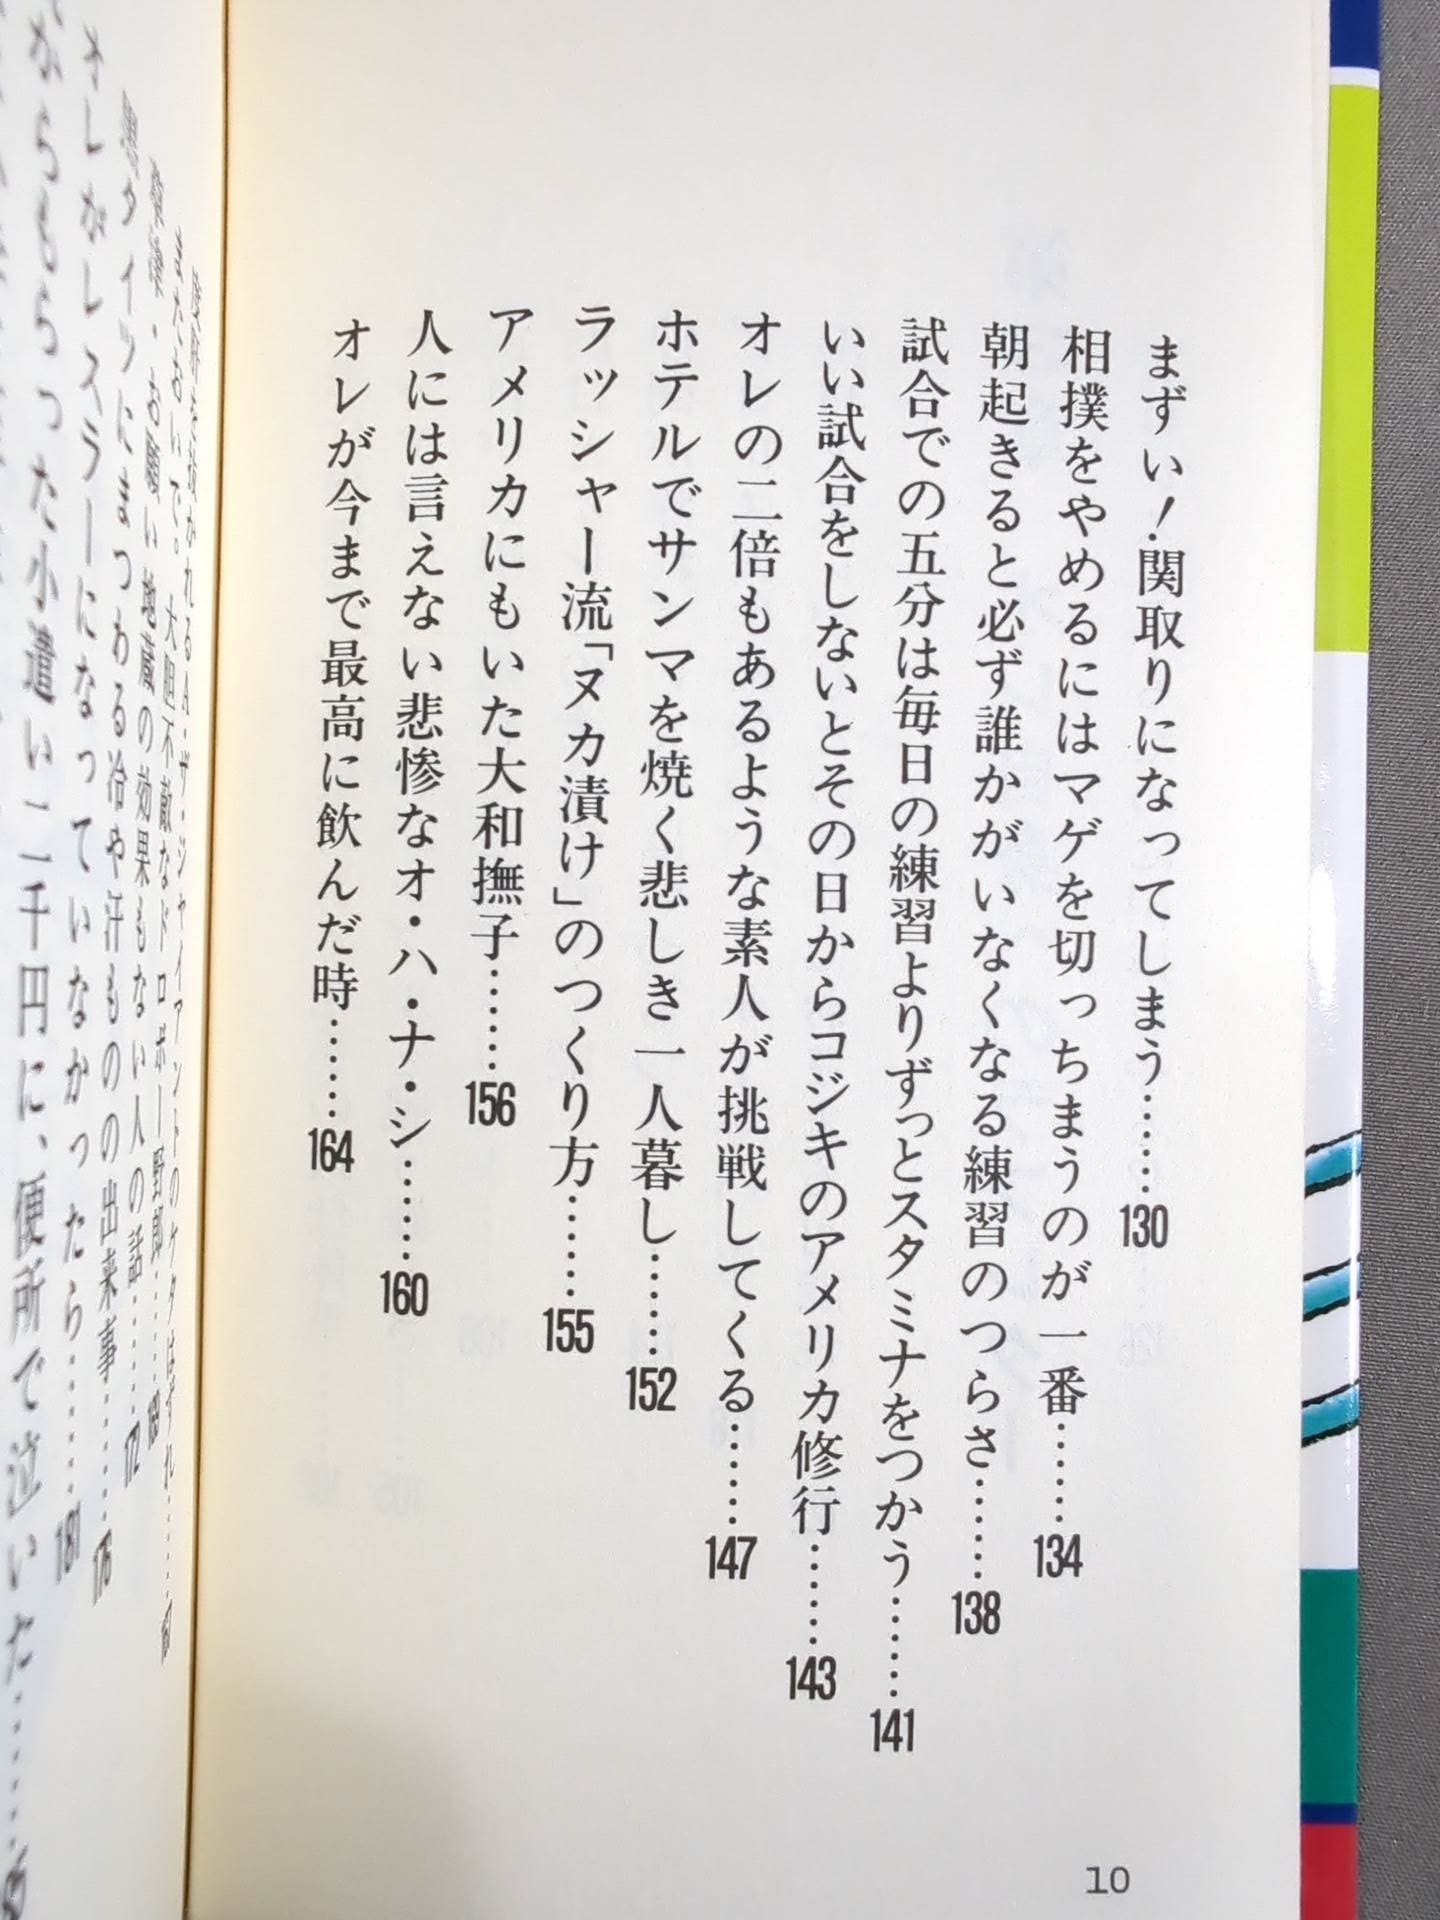 まずい！関取りになってしまう………130
相撲をやめるにはマゲを切っちまうのが一番………134
朝起きると必ず誰かがいなくなる練習のつらさ………138
試合での五分は毎日の練習よりずっとスタミナをつかう………141
いい試合をしないとその日からコジキのアメリカ修行………143
オレの二倍もあるような素人が挑戦してくる………147
ホテルでサンマを焼く悲しき一人暮し………152
ラッシャー流「ヌカ漬け」のつくり方………155
アメリカにもいた大和撫子………156
人には言えない悲惨なオ・ハ・ナ・シ………160
オレが今まで最高に飲んだ時………164
10
またおいで。大胆不敵なドロボー野郎………169
・お願い地蔵の効果もない人の話………172
黒タイツにまつわる冷や汗ものの出来事………176
オレがレスラーになっていなかったら………181
からもらった小遣い二千円に、便所で泣いた………